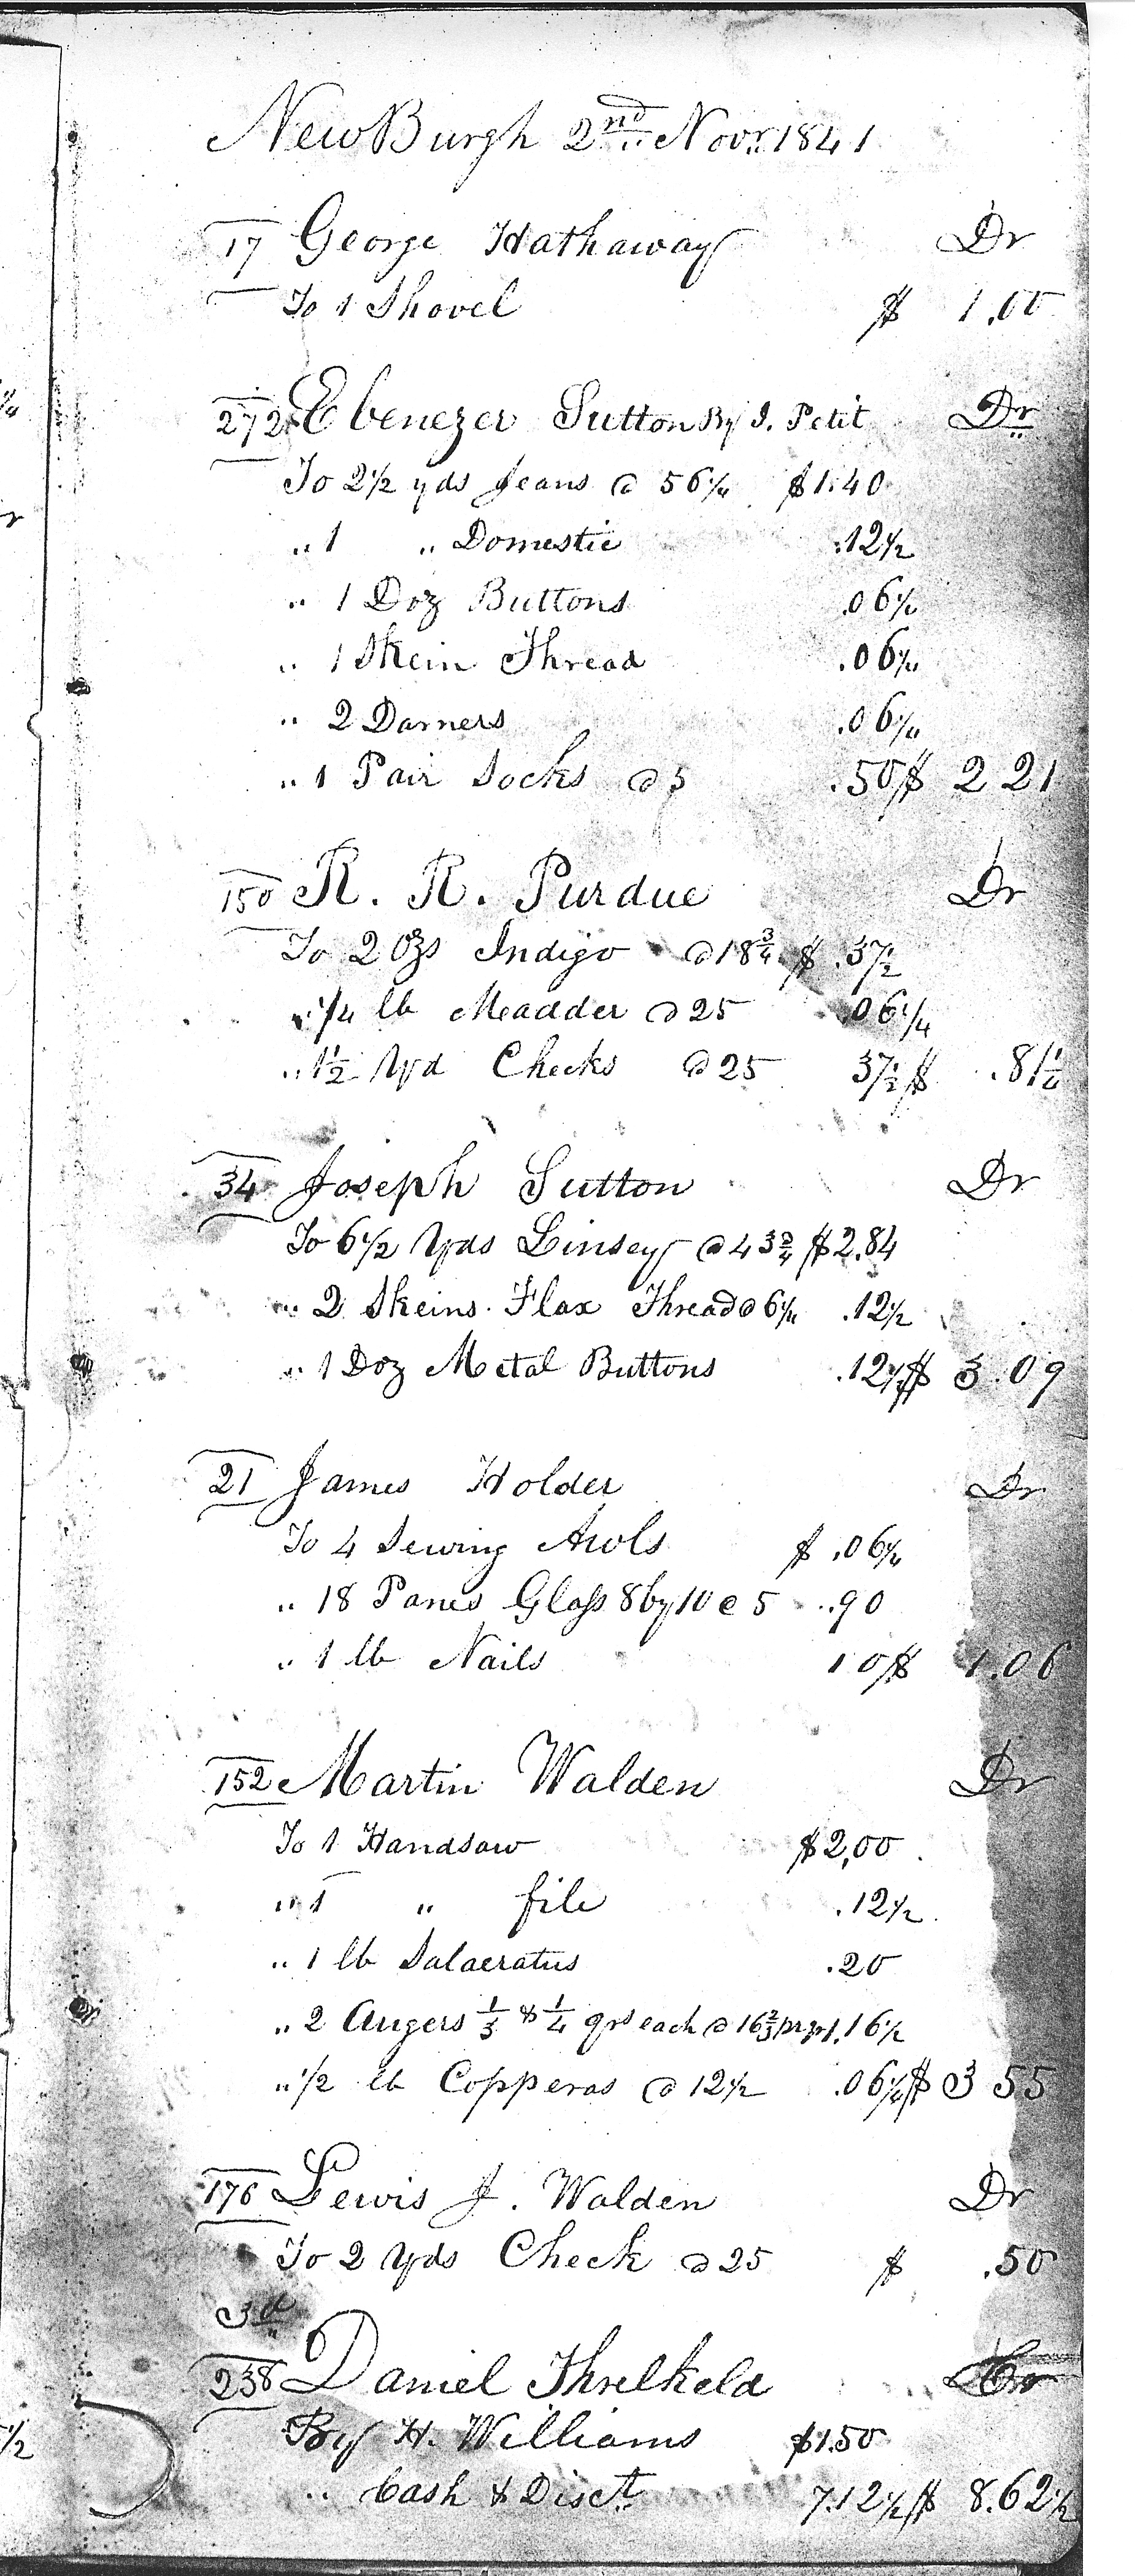 NewBurgh 2nd Novr 1841
17 George Hathaway Dr
To 1 Shovel $ 1.00
272 Ebenezer Sutton By J. Petit Dr
To 2 1/2 yds Jeans @ 56 1/4 $1.40
" 1 " Domestic .12 1/2
" 1 Doz Buttons .06 1/4
" 1 Skein Thread .06 1/4
" 2 Darners .06 1/4
" 1 Pair Socks @ 5 .50 $ 2 21
150 R. R. Purdue Dr
To 2 Ozs Indigo @ 18 3/4 $ .37 1/2
" 1/4 lb Meadder @ 25 .06 1/4
" 1 1/2 Yd Checks @ 25 37 1/2 $ .81 1/4
34 Joseph Sutton Dr
To 6 1/2 Yds Linsey @ 43 3/4 $2.84
" 2 Skeins Flax Thread @ 6 1/4 .12 1/2
" 1 Doz Metal Buttons .12 1/2 $ 3.09
21 James Holder Dr
To 4 Sewing Awls $ .06 1/4
" 18 Panes Glass 8 by 10 @ 5 .90
" 1 lb Nails 10 $ 1.06
152 Martin Walden Dr
To 1 Handsaw $2,00
" 1 " file .12 1/2
" 1 lb Salaeratus .20
" 2 Augers 1/3 & 1/4 qrs each @ 16 2/3 pr qr 1.16 1/2
" 1/2 lb Copperas @ 12 1/2 .06 1/4 $ 3 55
176 Lewis J. Walden Dr
To 2 Yds Check @ 25 $ .50
3d
238 Daniel Threlkeld Cr
By H. Williams $1.50
" Cash & Disct 7.12 1/2 $ 8.62 1/2